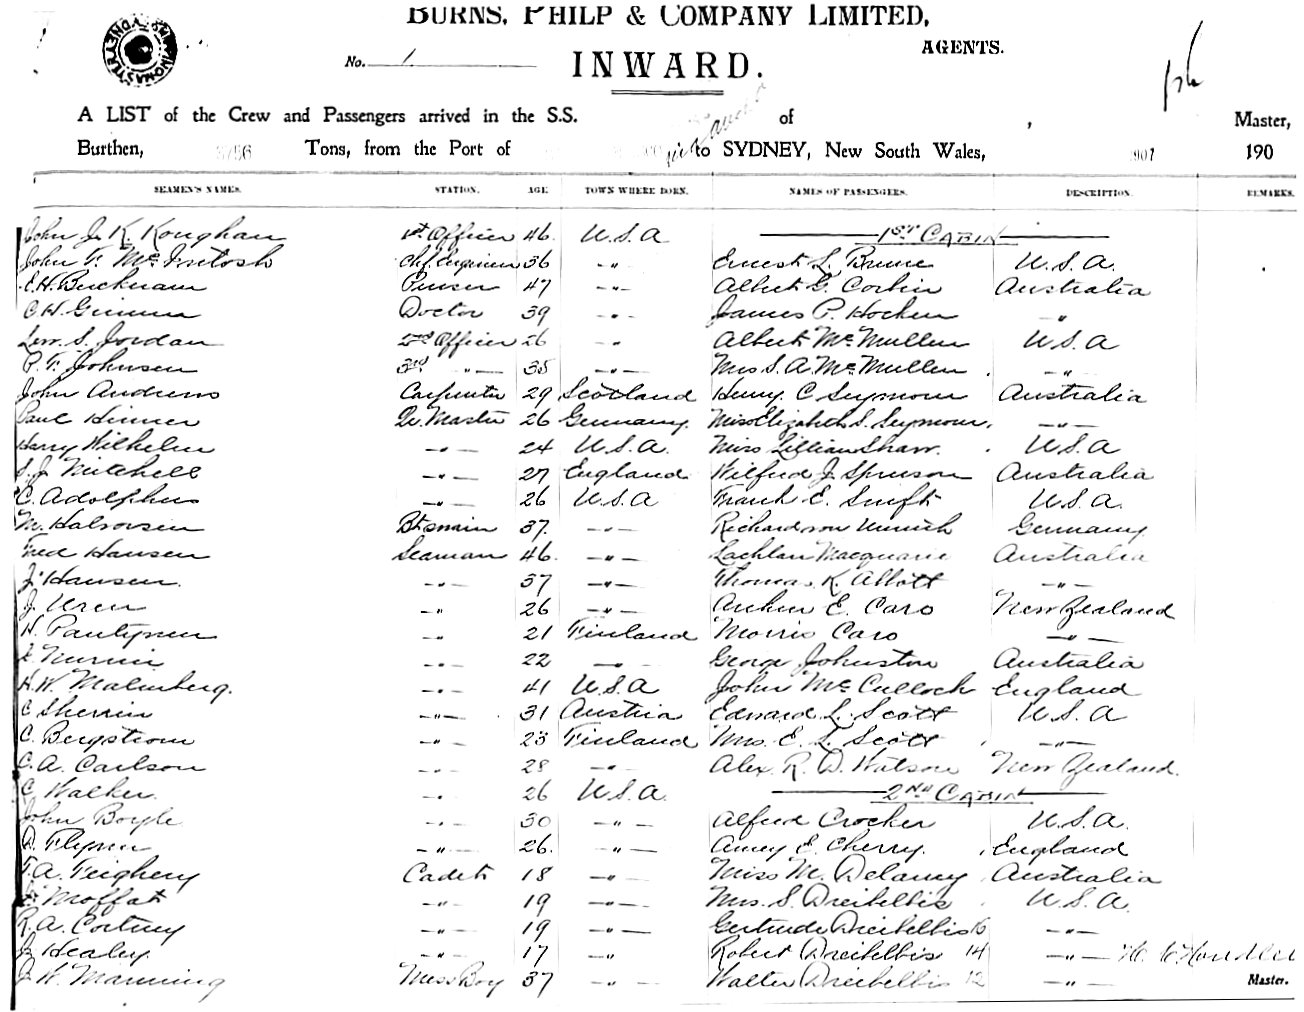 BURNS, PHILP & COMPANY LIMITED,
AGENTS.
No. 1
INWARD.
A LIST of the Crew and Passengers arrived in the S.S. of Master,
Burthen, 3756 Tons, from the Port of to SYDNEY, New South Wales, 1907 190
SEAMEN'S NAMES. STATION. AGE TOWN WHERE BORN. NAMES OF PASSENGERS. DESCRIPTION. REMARKS.
John J. K. Koughan 1st Officer 46 U.S.A 1ST CABIN
John F. McIntosh Chf. Engineer 36 -"- Ernest L. Brune U.S.A.
Purser 47 -"- Albert G. Corbin Australia
Doctor 39 -"- James P. Hocken "
S. Jordan 2nd Officer 26 -" Albert McMullen U.S.A
P. F. Johnsen 3rd -"- 35 -"- Mrs S. A. McMullen -"-
John Andrews Carpenter 29 Scotland Henry C Seymour Australia
Paul Hinner Qr. Master 26 Germany Miss Elizabeth S. Seymour, -"-
Harry Wilhelm -"- 24 U.S.A. Miss Lillian Shaw. U.S.A
S. J. Mitchell -"- 27 England Wilfred J. Spruson Australia
C. Adolphus -"- 26 U.S.A Frank E. Swift U.S.A.
M. Halvorsen Btswain 37. -"- Richard von Germany
Fred Hansen Seaman 46. -"- Lachlan Macquarie Australia
J. Hansen. -"- 37 -"- Thomas K. Abbott -"-
J. Uren -" 26 -"- Arthur E. Caro New Zealand
H. -" 21 Finland Morris Caro -"-
-" 22 -"- George Johnston Australia
H. W. Malmberg. -"- 41 U.S.A John McCulloch England
C Sherrin -"- 31 Austria Edward L. Scott U.S.A
C. Bergstrom -"- 23 Finland Mrs. E. L. Scott -"-
C. A. Carlson -"- 28 -"- Alex R. D. Watson New Zealand.
C. Walker. " 26 U.S.A. 2ND CABIN
John Boyle -"- 30 -"- Alfred Crocker U.S.A.
D. Flynn -"- 26. -"- Amey E. Cherry. England
T. A. Feighery Cadet 18 -"- Miss M. Delaney Australia
Moffat -"- 19 -"- Mrs. S. Dreibelbis U.S.A.
R. A. -"- 19 -"- Gertrude Dreibelbis 16 -"-
J. Healey -"- 17 -"- Robert Dreibelbis 14 -"-
J. W. Manning Mess Boy 37 -"- Walter Dreibelbis 12 -"- Master.